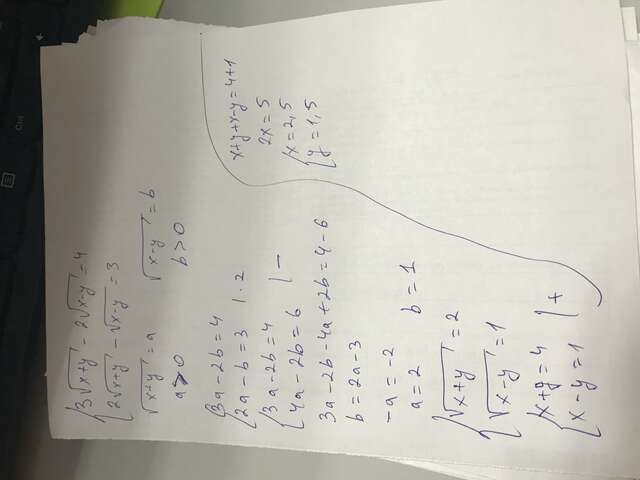 {3√x+y - 2√x-y = 4
2√x+y - √x-y = 3
√x+y = a √x-y = b
a > 0 b > 0
{3a - 2b = 4
2a - b = 3 | · 2
{3a - 2b = 4
4a - 2b = 6 | -
3a - 2b - 4a + 2b = 4 - 6
b = 2a - 3
-a = -2
a = 2 b = 1
{√x+y = 2
√x-y = 1
{x + y = 4
x - y = 1 | +
x+y+x-y = 4+1
2x = 5
{x = 2,5
y = 1,5
Ctrl